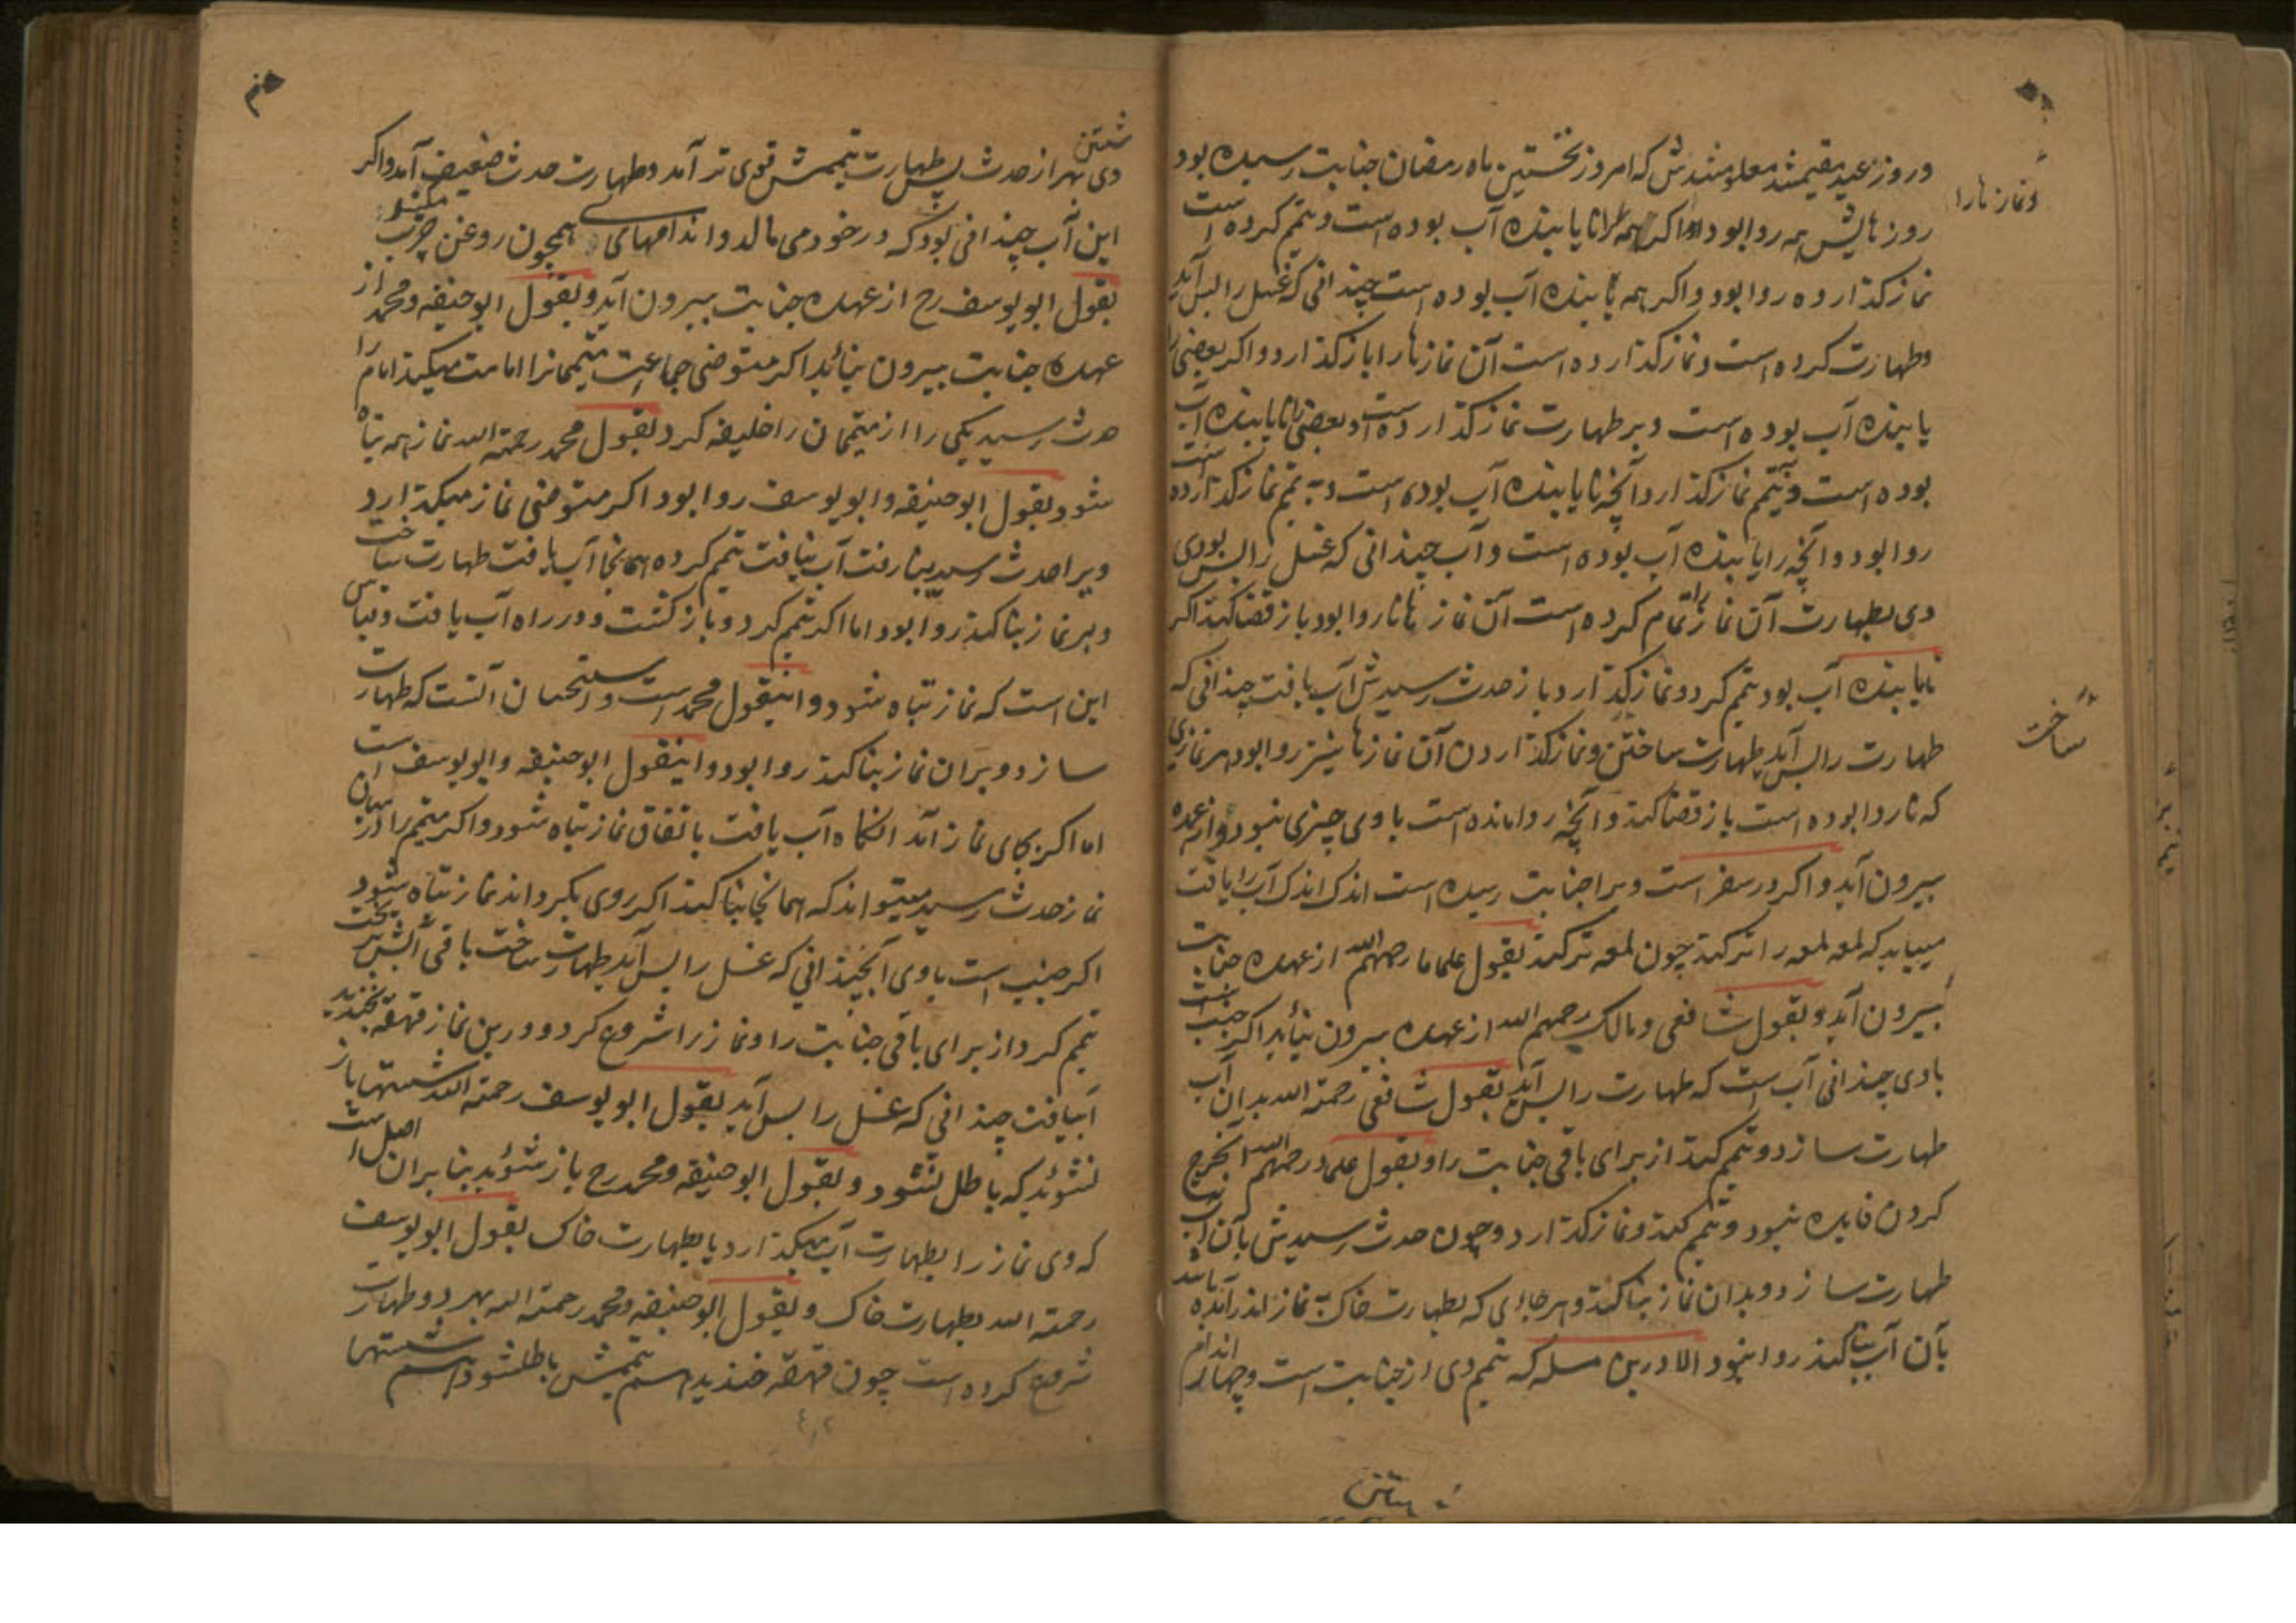 و روز عید مقیمشد معلومشدش که امروز نخستین ماه رمضان جنابت رسیده بود
ونماز نارا
روز هایش همه روا بود و اگر همه را نایابنده آب بوده است و تیمم کرده است
نماز گذارده روا بود و اگر همه یابنده آب بوده است چندانی که غسل را بس آید
وطهارت کرده است و نماز گذارده است آن نماز ها را باز گذارد و اگر بعضی را
یابنده آب بوده است و بر طهارت نماز گذارده است و بعضی نایابنده آب
بوده است و بتیمم نماز گذارد آنچه نایابنده آب بوده است و به تیمم نماز گذارده است
روا بود و آنچه را یابنده آب بوده است و آب چندانی که غسل را بس بودی
وی بطهارت آن نماز را تمام کرده است آن نماز ها ناروا بود باز قضا کند اگر
نایابنده آب بود تیمم کرد و نماز گذارد باز حدث رسیدش آب یافت چندانی که
طهارت را بس آید طهارت ساختن و نماز گذاردن آن نماز ها روا بود هر نمازی
ساخت
که ناروا بوده است باز قضا کند و آنچه روا مانده است با وی چیزی نبود و از عهده
بیرون آید و اگر در سفر است و برا جنابت رسیده است اندک اندک آب را یافت
میباید که لمعه لمعه را تر کند چون لمعه تر کند بقول علما ما رحمهم الله از عهده جنابت
بیرون آید و بقول شافعی و مالک رحمهم الله از عهده بیرون نیاید اگر جنب است
با وی چندانی آب است که طهارت را بس آید بقول شافعی رحمة الله بدان آب
طهارت سازد و تیمم کند از برای باقی جنابت را و بقول علما رحمهم الله آب خرج
کردن فایده نبود و تیمم کند و نماز گذارد و چون حدث رسیدش بآن آب
طهارت سازد و بدان نماز بنا کند و هر جای که بطهارت خاک به نماز اندر آمده باشد
بآن آب بنا کند روا نبود الا درین مسله که تیمم وی از جنابت است و چهار اندام
شستن
وی نهر از حدث پس طهارت تیممش قوی تر آمد و طهارت حدث ضعیف آمد و اگر
این آب چندانی بود که در خود می مالد و اندامهای همچون روغن چرب میکند
بقول ابو یوسف رح از عهده جنابت بیرون آید و بقول ابو حنیفه و محمد از
عهده جنابت بیرون نیاید اگر متوضی جماعت متیممانرا امامت میکند امام را
حدث رسید یکی را از متیممان را خلیفه کرد بقول محمد رحمة الله نماز همه تباه
شود و بقول ابو حنیفه و ابو یوسف روا بود اگر متوضی نماز میگذارد
ویرا حدث رسید بنا رفت آب نیافت تیمم کرده همانجا آب یافت طهارت ساخت
و بر نماز بنا کند روا بود اما اگر تیمم کرد و باز گشت و در راه آب یافت و قیاس
این است که نماز تباه شود و اینقول محمد است و استحسان آنست که طهارت
سازد و بران نماز بنا کند روا بود و اینقول ابو حنیفه و ابو یوسف است
اما اگر بجای نماز آمد انگاه آب یافت باتفاق نماز تباه شود و اگر متیمم را در میان
نماز حدث رسید میتواند که همانجا بنا کند اگر روی بگرداند نماز تباه شود
اگر جنب است با وی آبچندانی که غسل را بس آید طهارت ساخت باقی آبش بریخت
تیمم کرد از برای باقی جنابت را و نماز را شروع کرد و درین نماز قهقه بخندید
آبیافت چندانی که غسل را بس آید بقول ابو یوسف رحمة الله شستها باز
نشوید که باطل نشود و بقول ابو حنیفه و محمد رح باز شوید بنا بران اصل است
که وی نماز را بطهارت آب میگذارد یا بطهارت خاک بقول ابو یوسف
رحمة الله بطهارت خاک و بقول ابو حنیفه و محمد رحمة الله بهر دو طهارت
شروع کرده است چون قهقه خندید هم تیممش باطلشود هم شستها